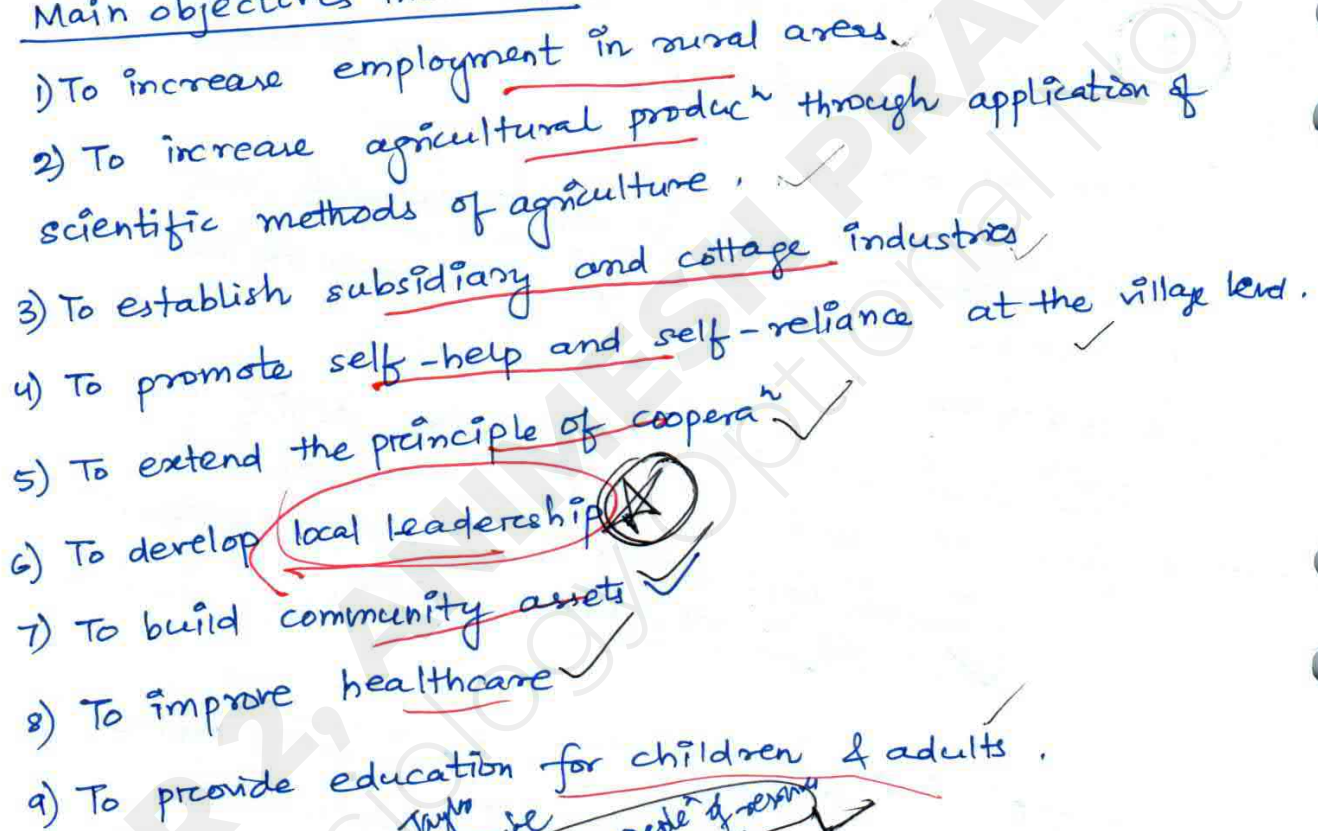 Main objectives
1) To increase employment in rural areas.
2) To increase agricultural producⁿ through application of
scientific methods of agriculture.
3) To establish subsidiary and cottage industries
4) To promote self-help and self-reliance at the village level.
5) To extend the principle of cooperaⁿ
6) To develop local leadership
7) To build community assets
8) To improve healthcare
9) To provide education for children & adults.
R 2, ANIMESH PRA
iology Optional